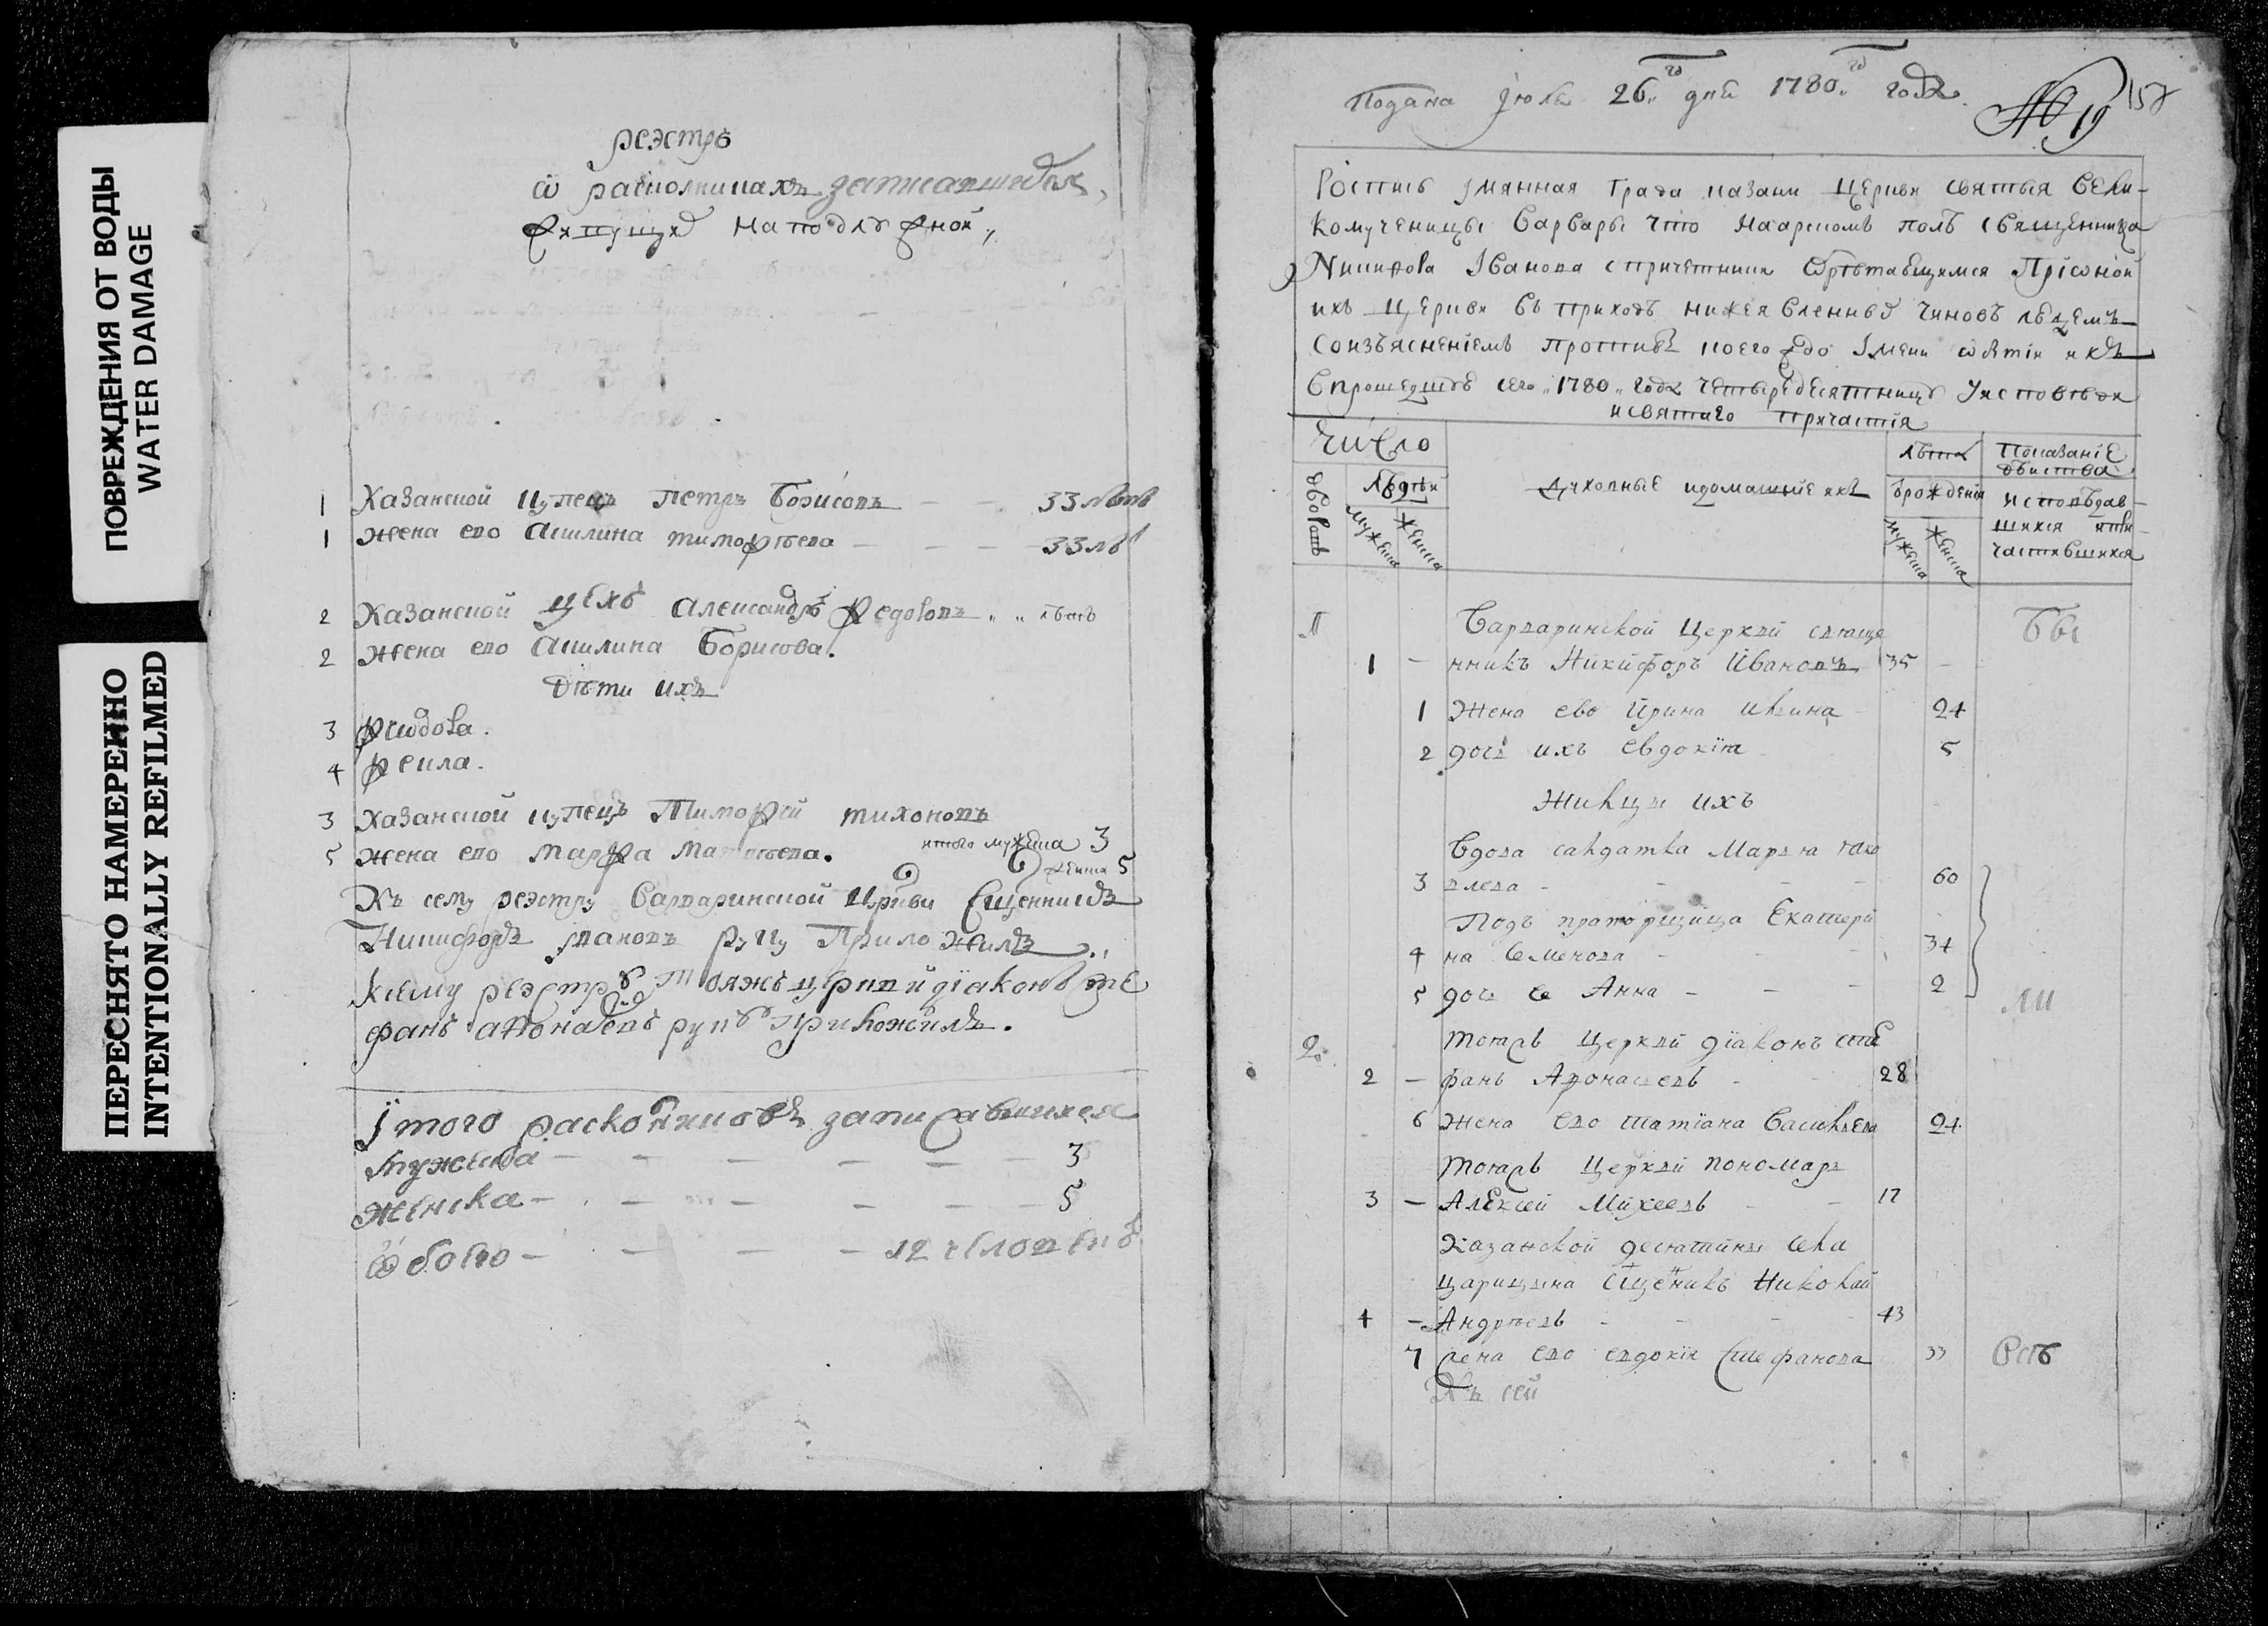 ПОВРЕЖДЕНИЯ ОТ ВОДЫ
WATER DAMAGE
ПЕРЕСНЯТО НАМЕРЕННО
INTENTIONALLY REFILMED
реэстръ
ѿ расколникахъ записавшихся
на подлѣ
1 Казанской купецъ Петръ Борисовъ — — 33 лѣтъ
1 жена ево Акилина Тимофѣева — — — 33 лѣ
2 Казанской цехъ Александръ Федоровъ „ „ лѣтъ
2 жена ево Акилина Борисова.
дѣти ихъ
3 Федора.
4 Фекла.
3 Казанской купецъ Тимофей Тихоновъ
5 жена ево Марфа Матвѣева.
итого мужеска 3
женска 5
Къ сему реэстру Варваринской церкви сщенникъ
Никифоръ Ивановъ руку приложилъ
к сему реэстру тояжъ церкви діаконъ Сте
фанъ Афонасевъ руку приложилъ.
Итого расколниковъ записавшихся
мужеска — — — — — — 3
женска — — — — — 5
ѿбоего — — — — 12 человекъ
Подана Июля 26 дня 1780 году
№ 19
157
Роспись имянная града Казани церкви святыя Вели-
комученицы Варвары что на арскомъ полѣ священника
Никифора Иванова с причетники ѡбрѣтающимся при оной
ихъ церкви въ приходѣ нижеявленныхъ чиновъ людемъ
со изъясненіемъ противъ коегождо имени ѡ бытіи ихъ
в прошедшую сего „1780„ года четыредесятницу у исповѣди
и святаго причастія
Число
дворовъ
людей
мужеска
женска
Духовные и домашніе ихъ
лѣта
ѿ рожденія
мужеска
женска
Показаніе
дѣиства
исповѣдав-
шихся и при-
частившихся
1 Варваринской церкви свяще
1 — нникъ Никифоръ Ивановъ 35 —
Бы
1 Жена ево Ирина Илина 24
2 дочь ихъ Евдокія 5
Жилцы ихъ
Вдова салдатка Марья Яко
3 влева — — — — 60
Подъ праторщица Екатери
4 на Семенова — — — 34
5 дочь ее Анна — — — 2
ли
2. тоежъ церкви діаконъ Сте
2 — фанъ Афонасевъ — 28
6 Жена ево Татіана Василева 24
тоежъ церкви пономарь
3 — Алексей Михеевъ — — 17
Казанской десятины села
Царицына сщенникъ Николай
4 — Андрѣевъ — — — — 43
7 жена ево Евдокія Стефанова 33
Всѣ
Къ сей